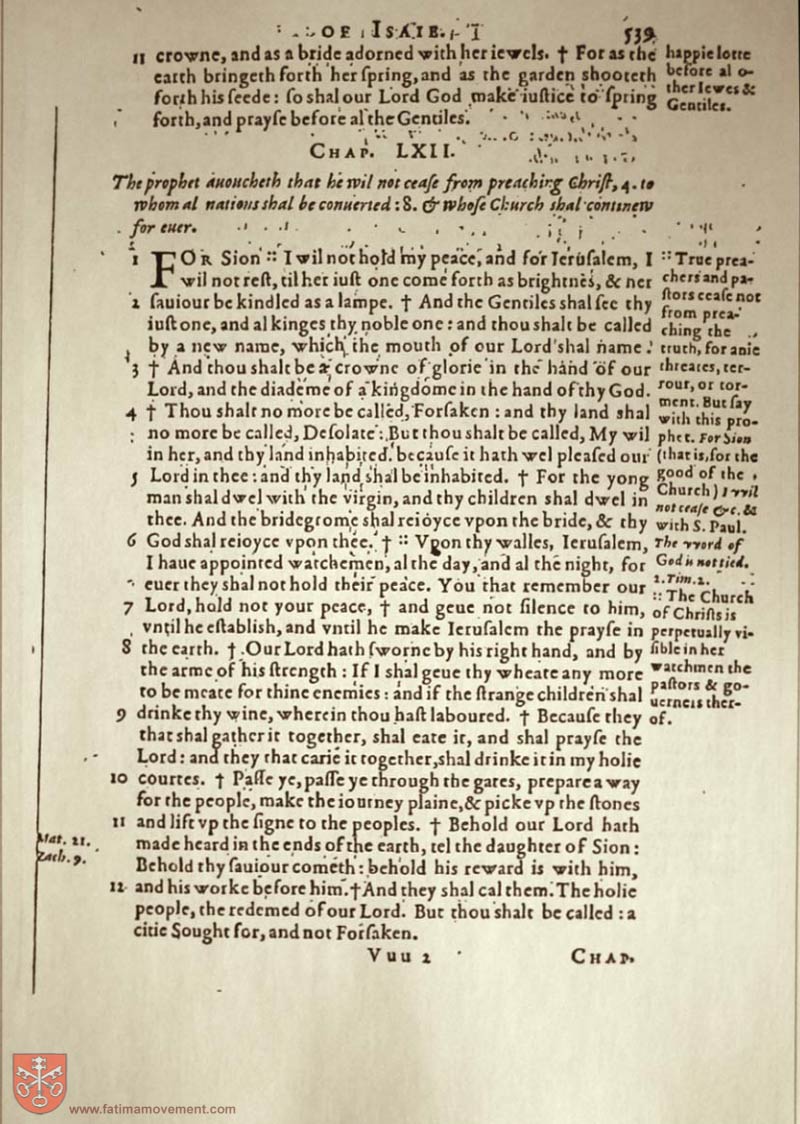 OF ISAIE. 539
11 crowne, and as a bride adorned with her iewels. † For as the
earth bringeth forth her spring, and as the garden shooteth
forth his seede: so shal our Lord God make iustice to spring
forth, and prayse before al the Gentiles.
happie lotte
before al o-
ther Iewes &
Gentiles.
CHAP. LXII.
The prophet auoucheth that he wil not cease from preaching Christ, 4. to
whom al nations shal be conuerted: 8. & whose Church shal continew
for euer.
1 FOR Sion :: I wil not hold my peace, and for Ierusalem, I
wil not rest, til her iust one come forth as brightnes, & her
2 sauiour be kindled as a lampe. † And the Gentiles shal see thy
iust one, and al kinges thy noble one: and thou shalt be called
by a new name, which the mouth of our Lord shal name.
3 † And thou shalt be a crowne of glorie in the hand of our
Lord, and the diademe of a kingdome in the hand of thy God.
4 † Thou shalt no more be called, Forsaken: and thy land shal
no more be called, Desolate: But thou shalt be called, My wil
in her, and thy land inhabited. because it hath wel pleased our
5 Lord in thee: and thy land shal be inhabited. † For the yong
man shal dwel with the virgin, and thy children shal dwel in
thee. And the bridegrome shal reioyce vpon the bride, & thy
6 God shal reioyce vpon thee. † :: Vpon thy walles, Ierusalem,
I haue appointed watchemen, al the day, and al the night, for
euer they shal not hold their peace. You that remember our
7 Lord, hold not your peace, † and geue not silence to him,
vntil he establish, and vntil he make Ierusalem the prayse in
8 the earth. † Our Lord hath sworne by his right hand, and by
the arme of his strength: If I shal geue thy wheate any more
to be meate for thine enemies: and if the strange children shal
9 drinke thy wine, wherein thou hast laboured. † Because they
that shal gather it together, shal eate it, and shal prayse the
Lord: and they that carie it together, shal drinke it in my holie
10 courtes. † Passe ye, passe ye through the gates, prepare a way
for the people, make the iourney plaine, & picke vp the stones
11 and lift vp the signe to the peoples. † Behold our Lord hath
made heard in the ends of the earth, tel the daughter of Sion:
Behold thy sauiour cometh: behold his reward is with him,
12 and his worke before him. † And they shal cal them: The holie
people, the redemed of our Lord. But thou shalt be called: a
citie Sought for, and not Forsaken.
:: True prea-
chers and pa-
stors cease not
from prea-
ching the
truth, for anie
threates, ter-
rour, or tor-
ment. But say
with this pro-
phet. For Sion
(that is, for the
good of the
Church) I wil
not cease &c. &
with S. Paul.
The word of
God is not tied.
2. Tim. 2.
:: The Church
of Christ is
perpetually vi-
sible in her
watchmen the
pastors & go-
uerners ther-
of.
Mat. 21.
Zach. 9.
Vuu 2 CHAP.
www.fatimamovement.com